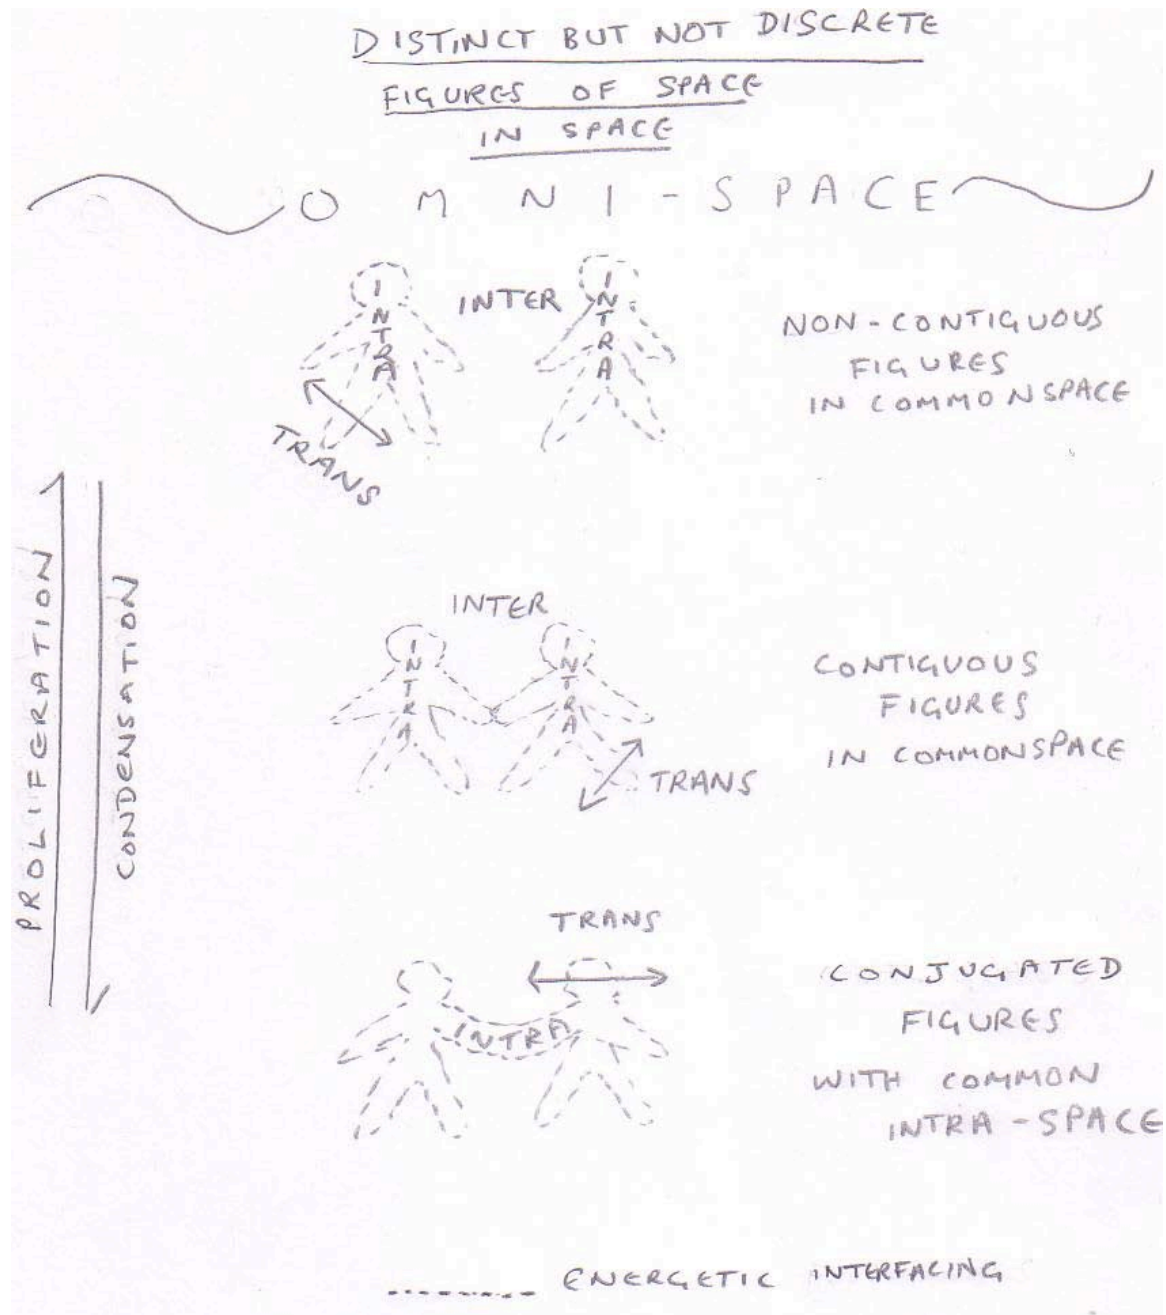 DISTINCT BUT NOT DISCRETE
FIGURES OF SPACE
IN SPACE
OMNI-SPACE
INTRA
INTER
INTRA
NON-CONTIGUOUS
FIGURES
IN COMMONSPACE
TRANS
PROLIFERATION
CONDENSATION
INTER
INTRA
INTRA
CONTIGUOUS
FIGURES
IN COMMONSPACE
TRANS
TRANS
INTRA
CONJUGATED
FIGURES
WITH COMMON
INTRA-SPACE
ENERGETIC INTERFACING